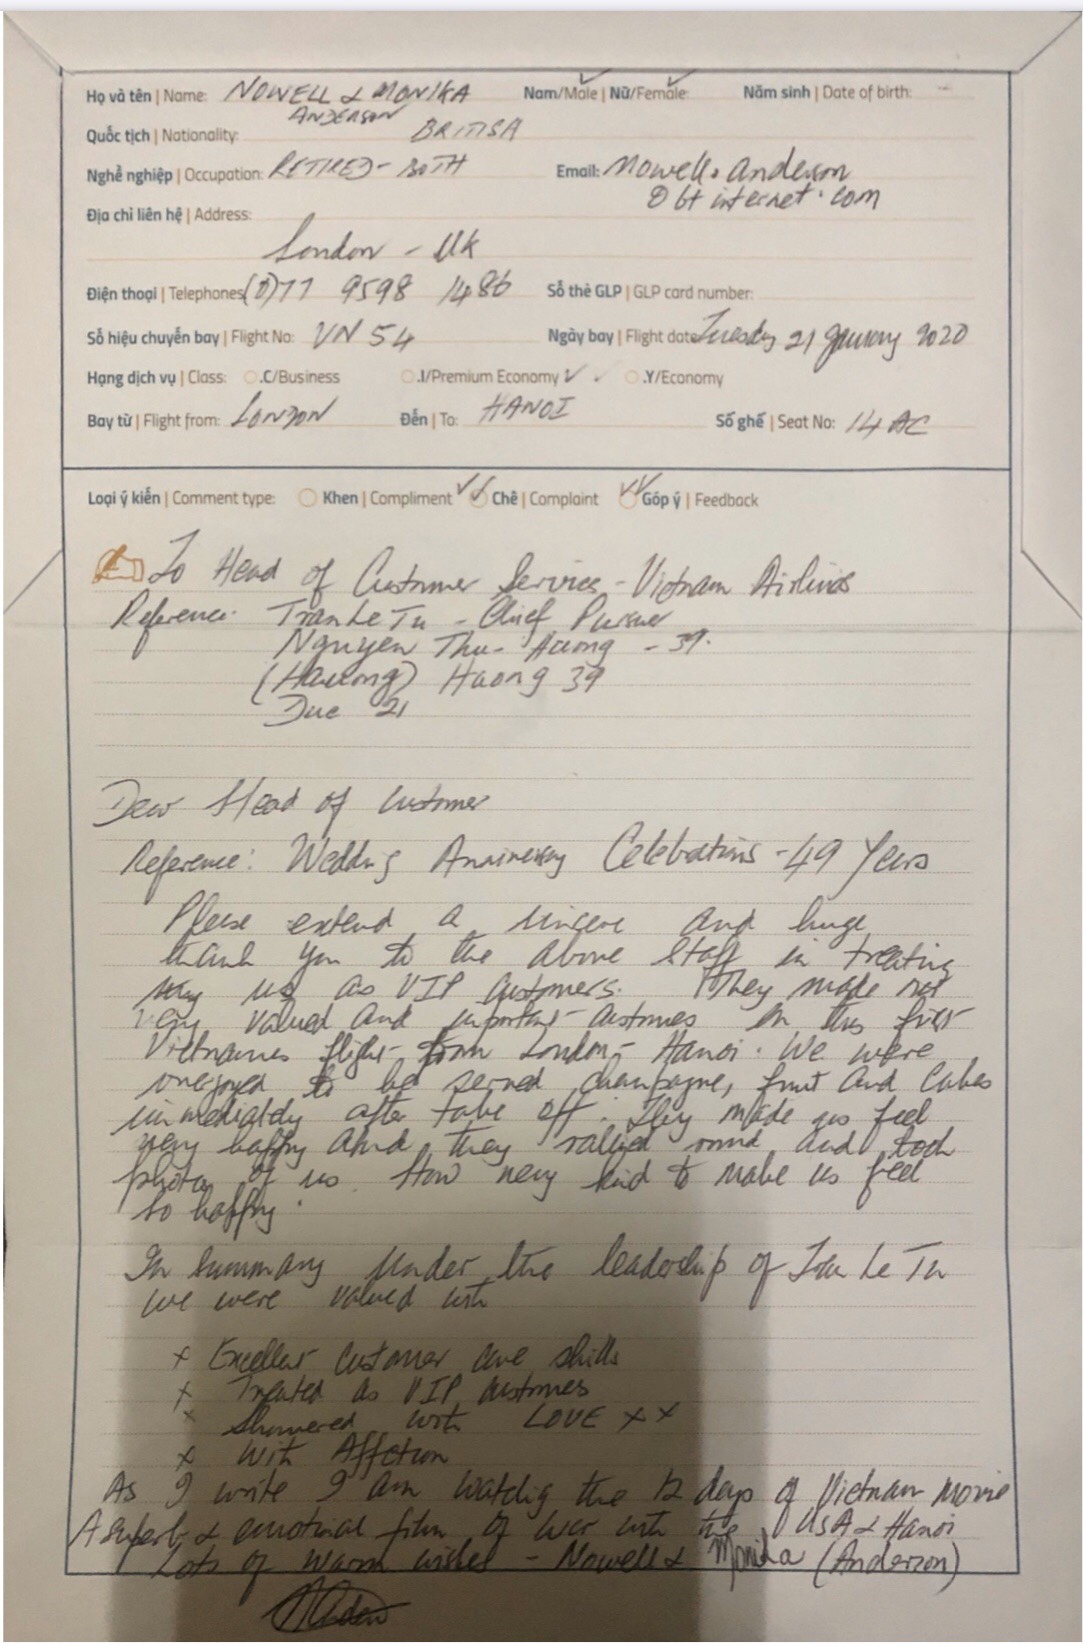 Họ và tên | Name: NOWELL & MONIKA Nam/Male | Nữ/Female: Năm sinh | Date of birth:
ANDERSON
Quốc tịch | Nationality: BRITISH
Nghề nghiệp | Occupation: RETIRED - BOTH Email: Nowell.anderson
@btinternet.com
Địa chỉ liên hệ | Address:
London - UK
Điện thoại | Telephones: (0)77 9598 1486 Số thẻ GLP | GLP card number:
Số hiệu chuyến bay | Flight No: VN 54 Ngày bay | Flight date: Tuesday 21 January 2020
Hạng dịch vụ | Class: .C/Business .I/Premium Economy ✓ .Y/Economy
Bay từ | Flight from: LONDON Đến | To: HANOI Số ghế | Seat No: 14 AC
Loại ý kiến | Comment type: Khen | Compliment ✓✓ Chê | Complaint ✓✓ Góp ý | Feedback
To Head of Customer Services - Vietnam Airlines
Reference: Tran Le Tu - Chief Purser
Nguyen Thu- Huong - 39.
(Hauong) Huong 39
Duc 21
Dear Head of Customer
Reference: Wedding Anniversary Celebrations - 49 Years
Please extend a sincere and huge
thank you to the above Staff in treating
us as VIP customers. They made us
very valued and important customers on this first
Vietnames flight from London - Hanoi. We were
overjoyed to be served champagne, fruit and cakes
immediately after take off. They made us feel
very happy and they rallied round and took
photos of us. How very kind to make us feel
so happy.
In summary under the leadership of Tran Le Tu
we were valued with
x Excellent customer care skills
x Treated as VIP customers
x Showered with LOVE x x
x With Affection
As I write I am watching the 12 days of Vietnam Movie
A superb & emotional film of war with the USA & Hanoi
Lots of warm wishes - Nowell & Monika (Anderson)